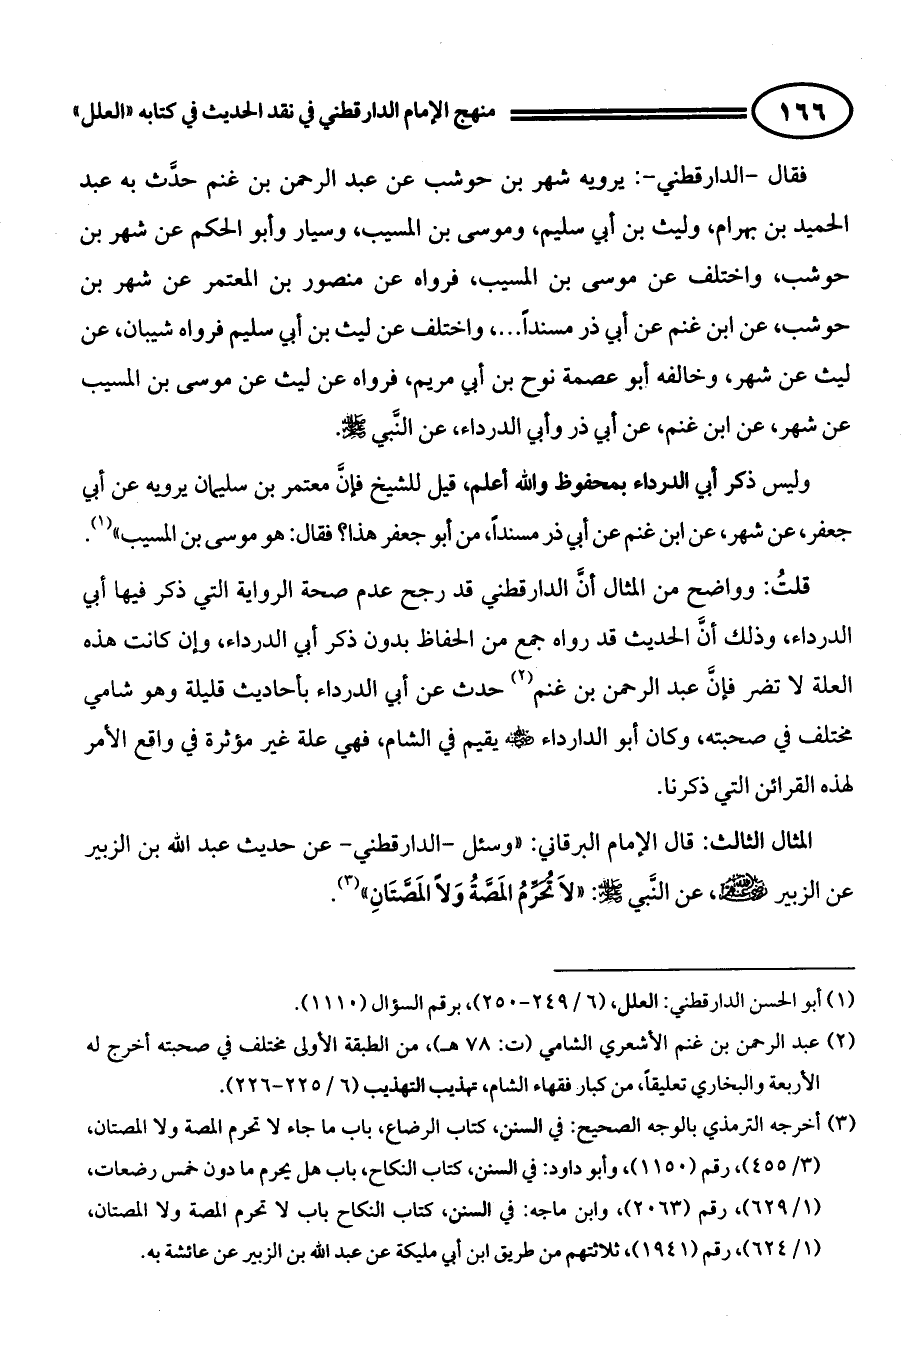 ١٦٦ منهج الإمام الدارقطني في نقد الحديث في كتابه «العلل»
فقال -الدارقطني-: يرويه شهر بن حوشب عن عبد الرحمن بن غنم حدَّث به عبد
الحميد بن بهرام، وليث بن أبي سليم، وموسى بن المسيب، وسيار وأبو الحكم عن شهر بن
حوشب، واختلف عن موسى بن المسيب، فرواه عن منصور بن المعتمر عن شهر بن
حوشب، عن ابن غنم عن أبي ذر مسنداً...، واختلف عن ليث بن أبي سليم فرواه شيبان، عن
ليث عن شهر، وخالفه أبو عصمة نوح بن أبي مريم، فرواه عن ليث عن موسى بن المسيب
عن شهر، عن ابن غنم، عن أبي ذر وأبي الدرداء، عن النَّبي ﷺ.
وليس ذكر أبي الدرداء بمحفوظ والله أعلم، قيل للشيخ فإنَّ معتمر بن سليمان يرويه عن أبي
جعفر، عن شهر، عن ابن غنم عن أبي ذر مسنداً، من أبو جعفر هذا؟ فقال: هو موسى بن المسيب»(١).
قلتُ: وواضح من المثال أنَّ الدارقطني قد رجح عدم صحة الرواية التي ذكر فيها أبي
الدرداء، وذلك أنَّ الحديث قد رواه جمع من الحفاظ بدون ذكر أبي الدرداء، وإن كانت هذه
العلة لا تضر فإنَّ عبد الرحمن بن غنم(٢) حدث عن أبي الدرداء بأحاديث قليلة وهو شامي
مختلف في صحبته، وكان أبو الدارداء ﷺ يقيم في الشام، فهي علة غير مؤثرة في واقع الأمر
لهذه القرائن التي ذكرنا.
المثال الثالث: قال الإمام البرقاني: «وسئل -الدارقطني- عن حديث عبد الله بن الزبير
عن الزبير، عن النَّبي ﷺ: «لاَ تُحَرِّمُ المَصَّةُ وَلاَ المَصَّتَانِ»(٣).
(١) أبو الحسن الدارقطني: العلل، (٦/ ٢٤٩-٢٥٠)، برقم السؤال (١١١٠).
(٢) عبد الرحمن بن غنم الأشعري الشامي (ت: ٧٨ هـ)، من الطبقة الأولى مختلف في صحبته أخرج له
الأربعة والبخاري تعليقاً، من كبار فقهاء الشام، تهذيب التهذيب (٦/ ٢٢٥-٢٢٦).
(٣) أخرجه الترمذي بالوجه الصحيح: في السنن، كتاب الرضاع، باب ما جاء لا تحرم المصة ولا المصتان،
(٣/ ٤٥٥)، رقم (١١٥٠)، وأبو داود: في السنن، كتاب النكاح، باب هل يحرم ما دون خمس رضعات،
(١/ ٦٢٩)، رقم (٢٠٦٣)، وابن ماجه: في السنن، كتاب النكاح باب لا تحرم المصة ولا المصتان،
(١/ ٦٢٤)، رقم (١٩٤١)، ثلاثتهم من طريق ابن أبي مليكة عن عبد الله بن الزبير عن عائشة به.